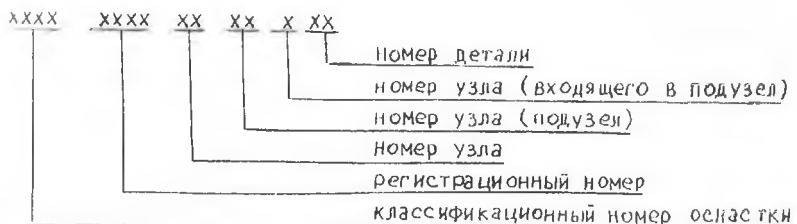 XXXX XXXX XX XX X XX
номер детали
номер узла (входящего в подузел)
номер узла (подузел)
номер узла
регистрационный номер
классификационный номер оснастки